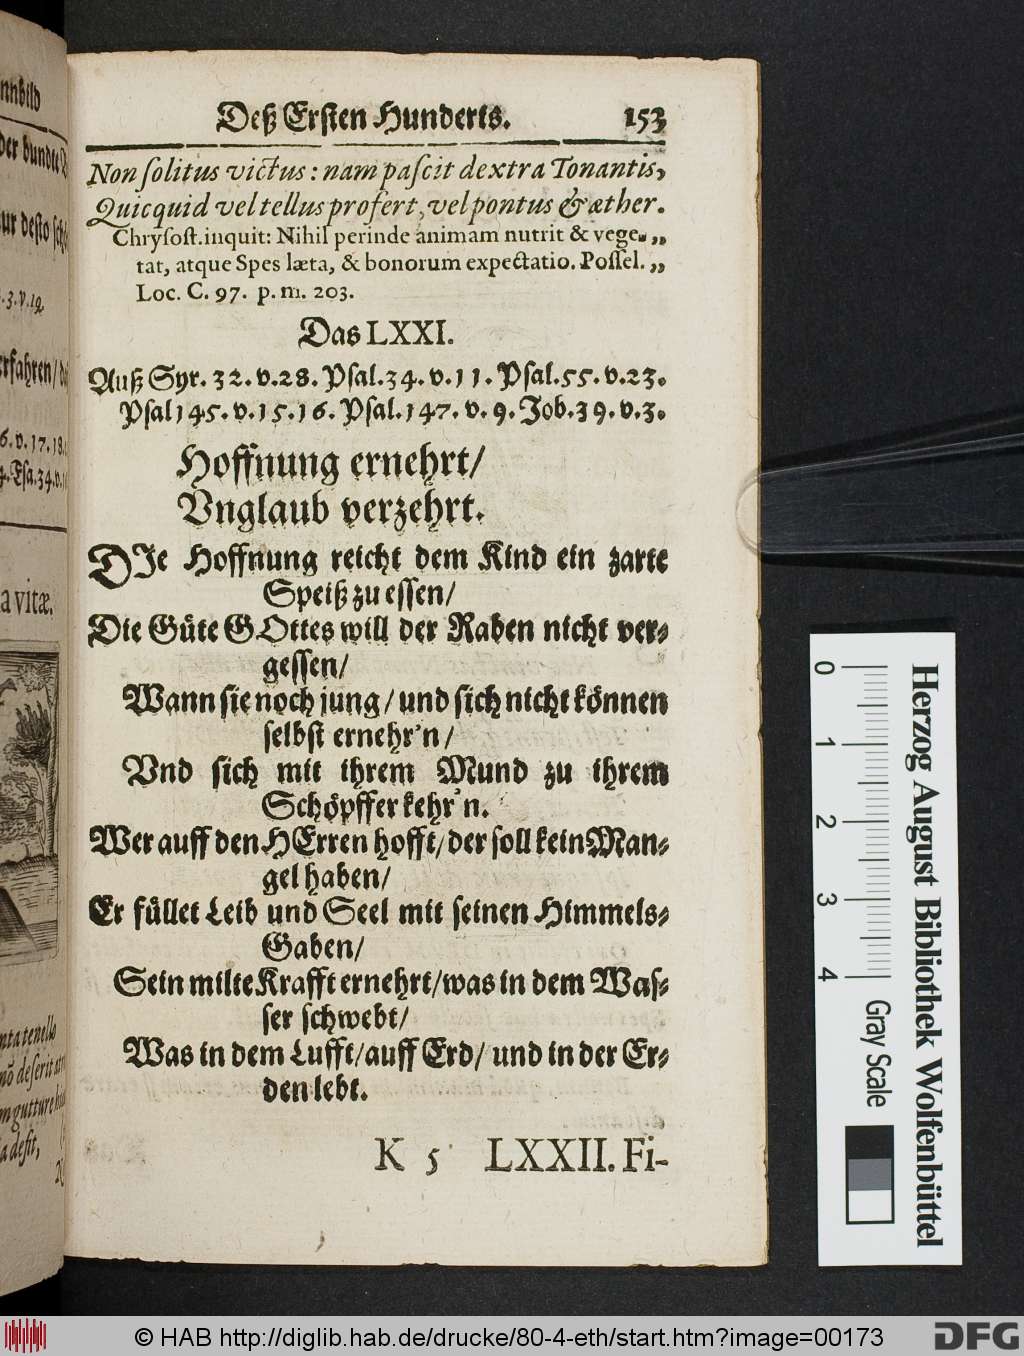 nnbild
der bundte
ur desto sch
.3.v.19.
rfahren/
6.v.17.18.
4.Esa.34.v.
a vitæ.
nta tenello
nō deserit
m gutture
a desit,
Deß Ersten Hunderts. 153
Non ſolitus victus: nam paſcit dextra Tonantis,
Quicquid vel tellus profert, vel pontus & æther.
Chryſoſt. inquit: Nihil perinde animam nutrit & vege- „
tat, atque Spes læta, & bonorum expectatio. Poſſel. „
Loc. C. 97. p. m. 203.
Das LXXI.
Auß Syr. 32. v. 28. Pſal. 34. v. 11. Pſal. 55. v. 23.
Pſal 145. v. 15. 16. Pſal. 147. v. 9. Job. 39. v. 3.
Hoffnung ernehrt/
Vnglaub verzehrt.
DIe Hoffnung reicht dem Kind ein zarte
Speiß zu eſſen/
Die Güte GOttes will der Raben nicht ver-
geſſen/
Wann ſie noch jung/ und ſich nicht können
ſelbſt ernehr'n/
Vnd ſich mit ihrem Mund zu ihrem
Schöpffer kehr'n.
Wer auff den HErren hofft/ der ſoll kein Man-
gel haben/
Er füllet Leib und Seel mit ſeinen Himmels-
Gaben/
Sein milte Krafft ernehrt/ was in dem Waſ-
ſer ſchwebt/
Was in dem Lufft/ auff Erd/ und in der Er-
den lebt.
K 5 LXXII. Fi-
Herzog August Bibliothek Wolfenbüttel
0 1 2 3 4
Gray Scale
© HAB http://diglib.hab.de/drucke/80-4-eth/start.htm?image=00173
DFG